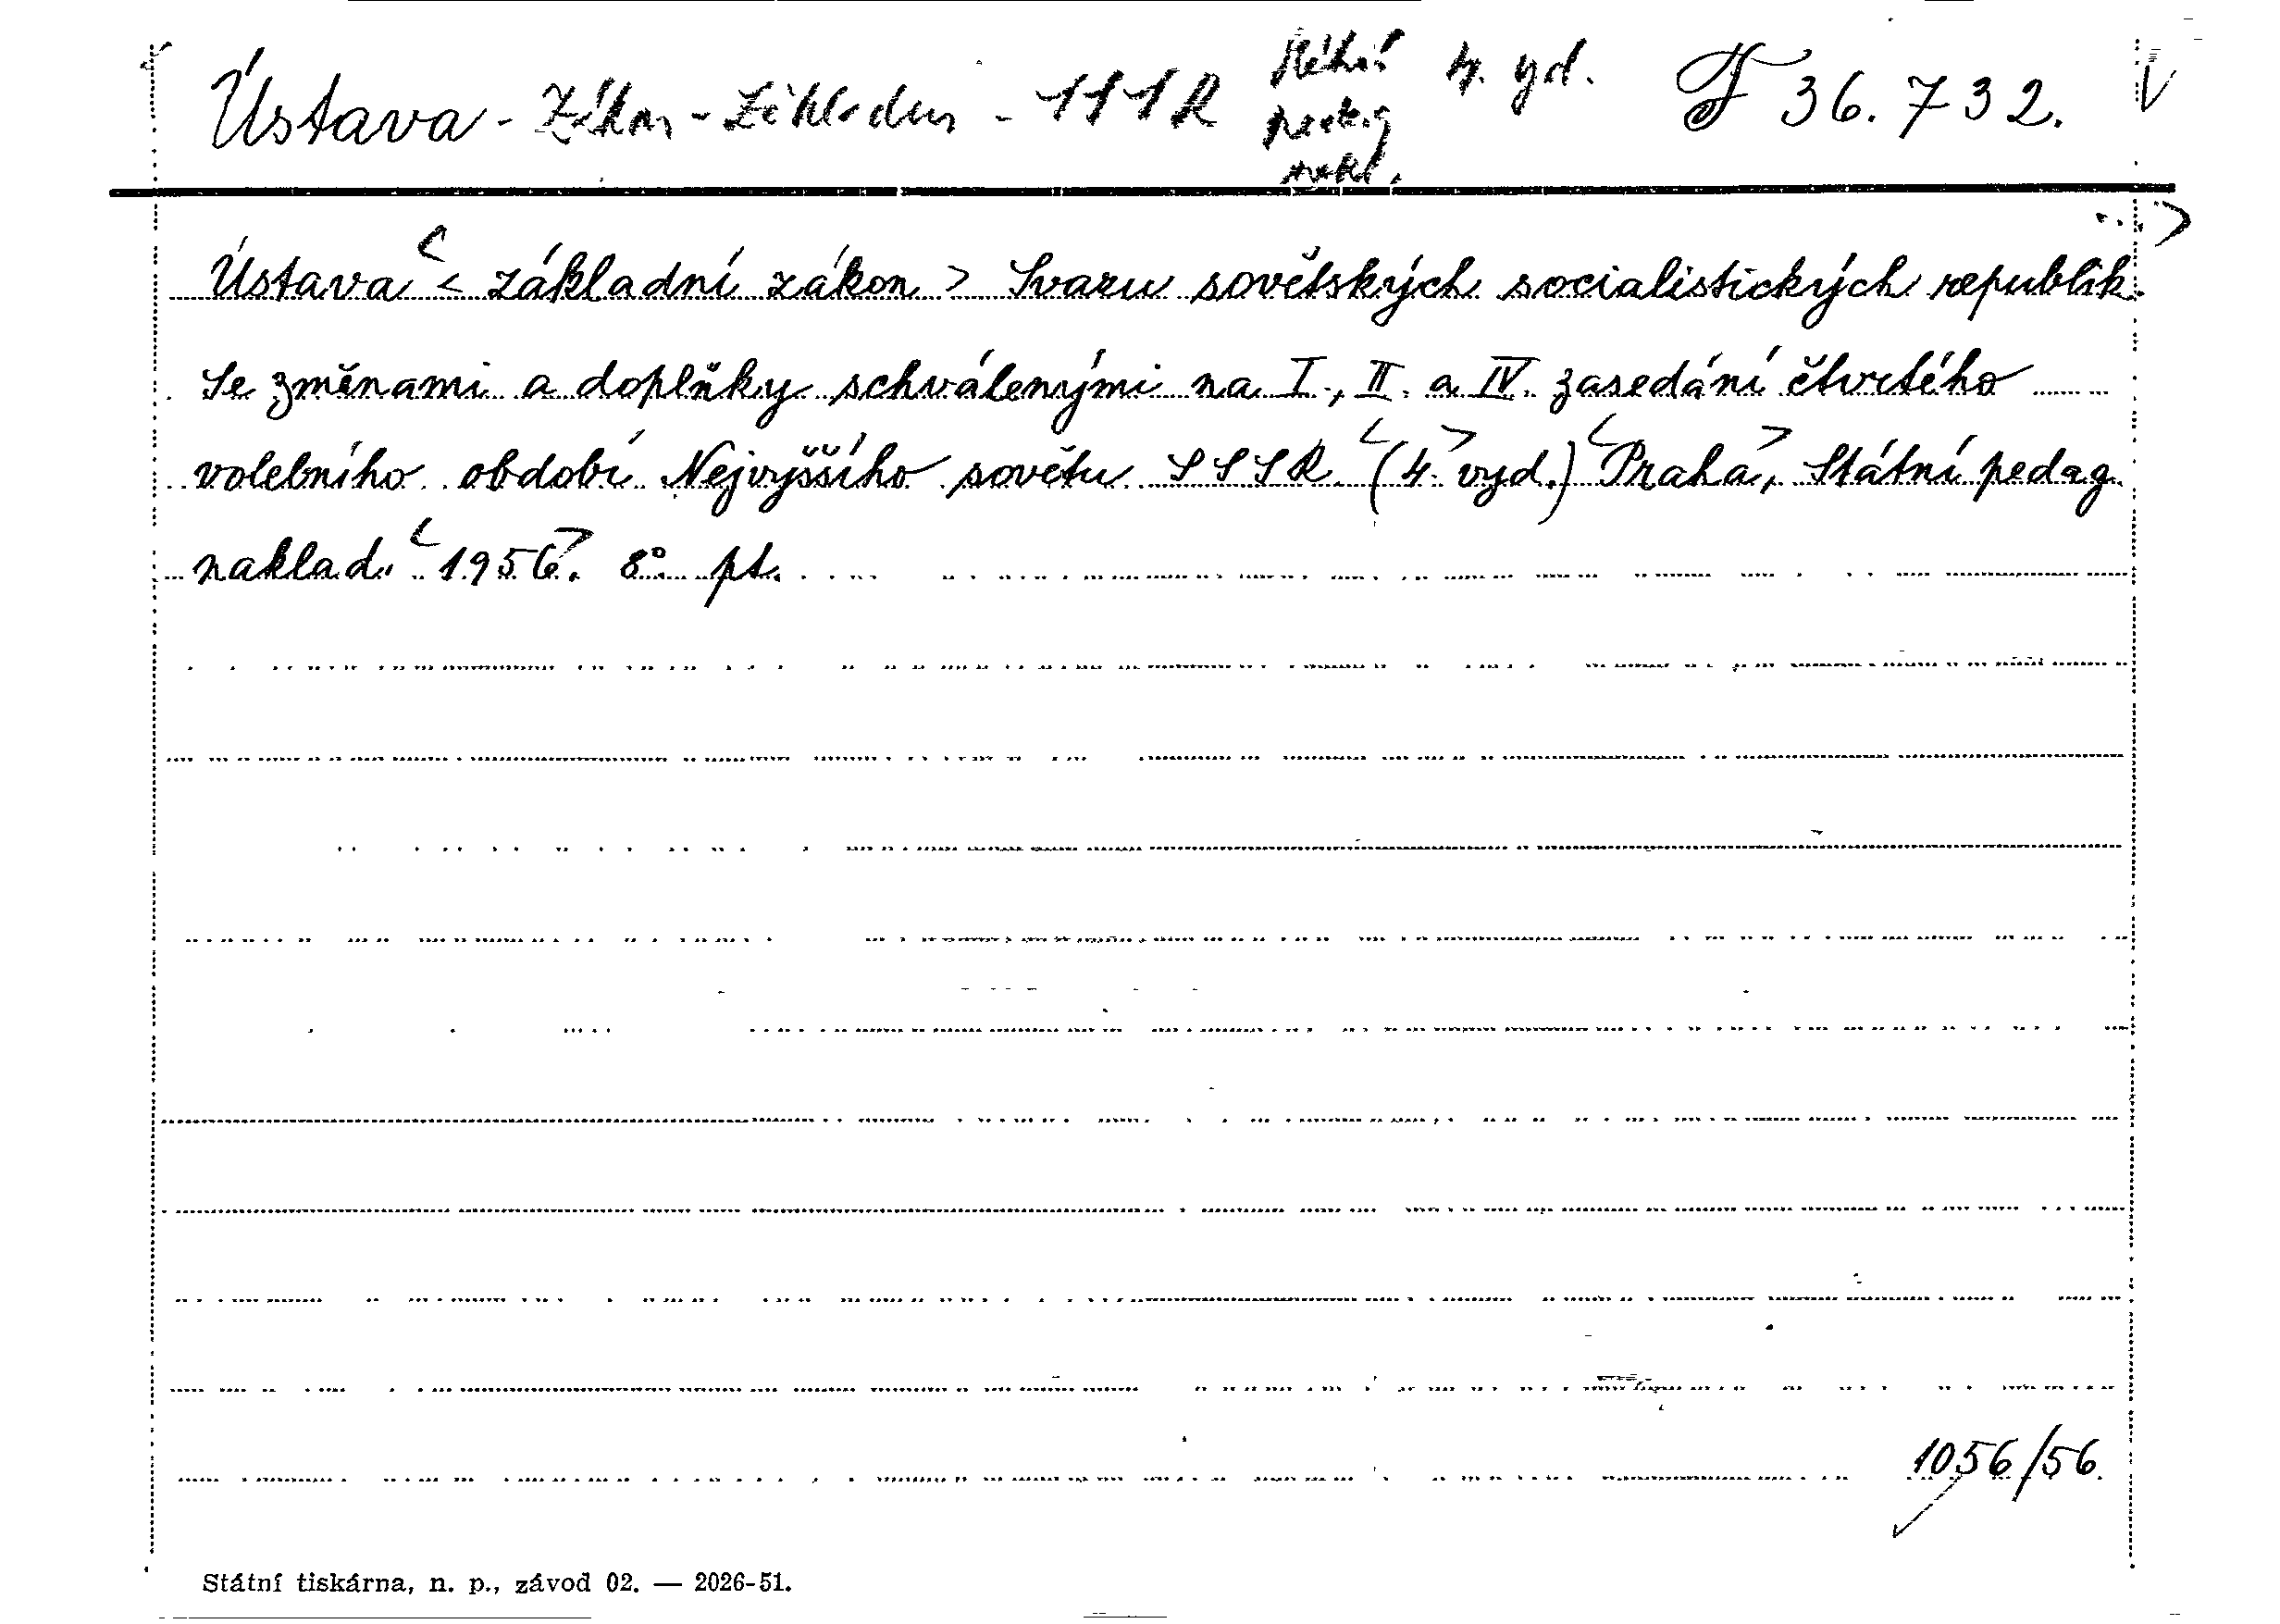 Ústava - Zákon - Základní - SSSR Státní pedag. nakl. 4. vyd. F 36.732. V
Ústava < základní zákon > Svazu sovětských socialistických republik.
Se změnami a doplňky schválenými na I., II. a IV. zasedání čtvrtého
volebního období Nejvyššího sovětu SSSR. (4. vyd.) Praha, Státní pedag.
naklad. 1956. 8° pt.
1056/56.
Státní tiskárna, n. p., závod 02. — 2026-51.